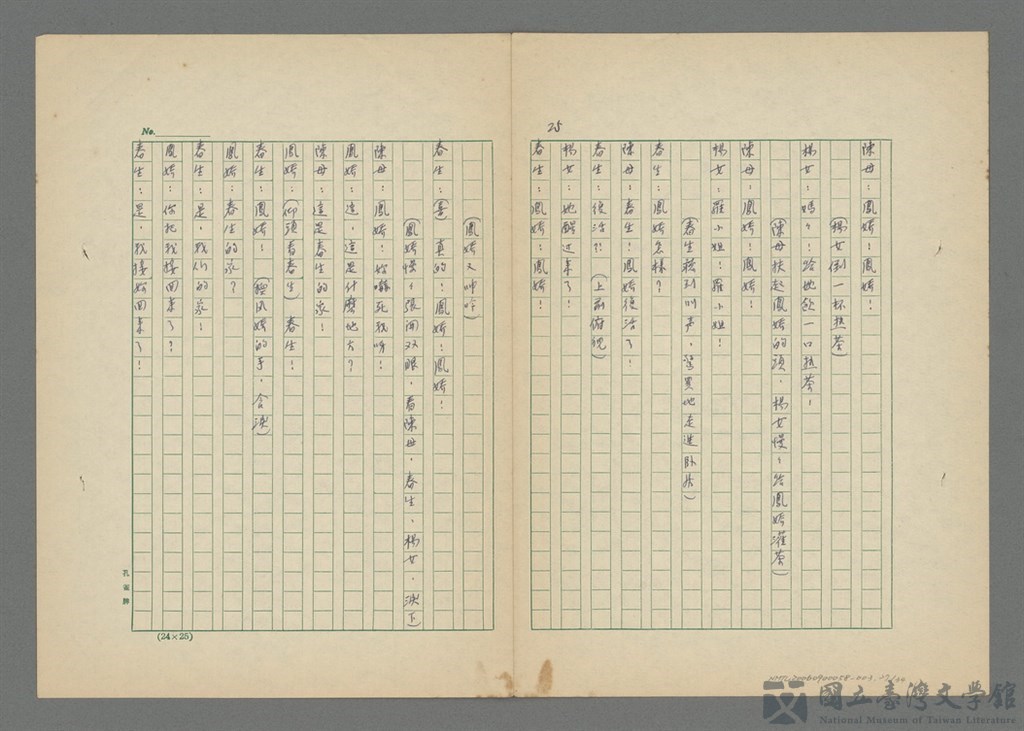 25
陳母：鳳嬌！鳳嬌！
（楊女倒一杯熱茶）
楊女：媽々！給她飲一口熱茶！
（陳母扶起鳳嬌的頭．楊女慢々給鳳嬌灌茶）
陳母：鳳嬌！鳳嬌！
楊女：羅小姐！羅小姐！
（春生聽到叫声．緊異地走進卧房）
春生：鳳嬌怎樣？
陳母：春生！鳳嬌復活了！
春生：復活!?（上前俯視）
楊女：她醒过來了！
春生：鳳嬌！鳳嬌！
（鳳嬌又呻吟）
春生：（喜）真的！鳳嬌！鳳嬌！
（鳳嬌慢々張開双眼．看陳母．春生．楊女．淚下）
陳母：鳳嬌！妳嚇死我呀！
鳳嬌：這，這是什麼地方？
陳母：這是春生的家！
鳳嬌：（仰頭看春生）春生！
春生：鳳嬌！（鳳嬌的手．含淚）
鳳嬌：春生的家？
春生：是，我们的家！
鳳嬌：你把我接回來了？
春生：是，我接妳回來了！
No.
孔雀牌
(24×25)
國立臺灣文學館
National Museum of Taiwan Literature